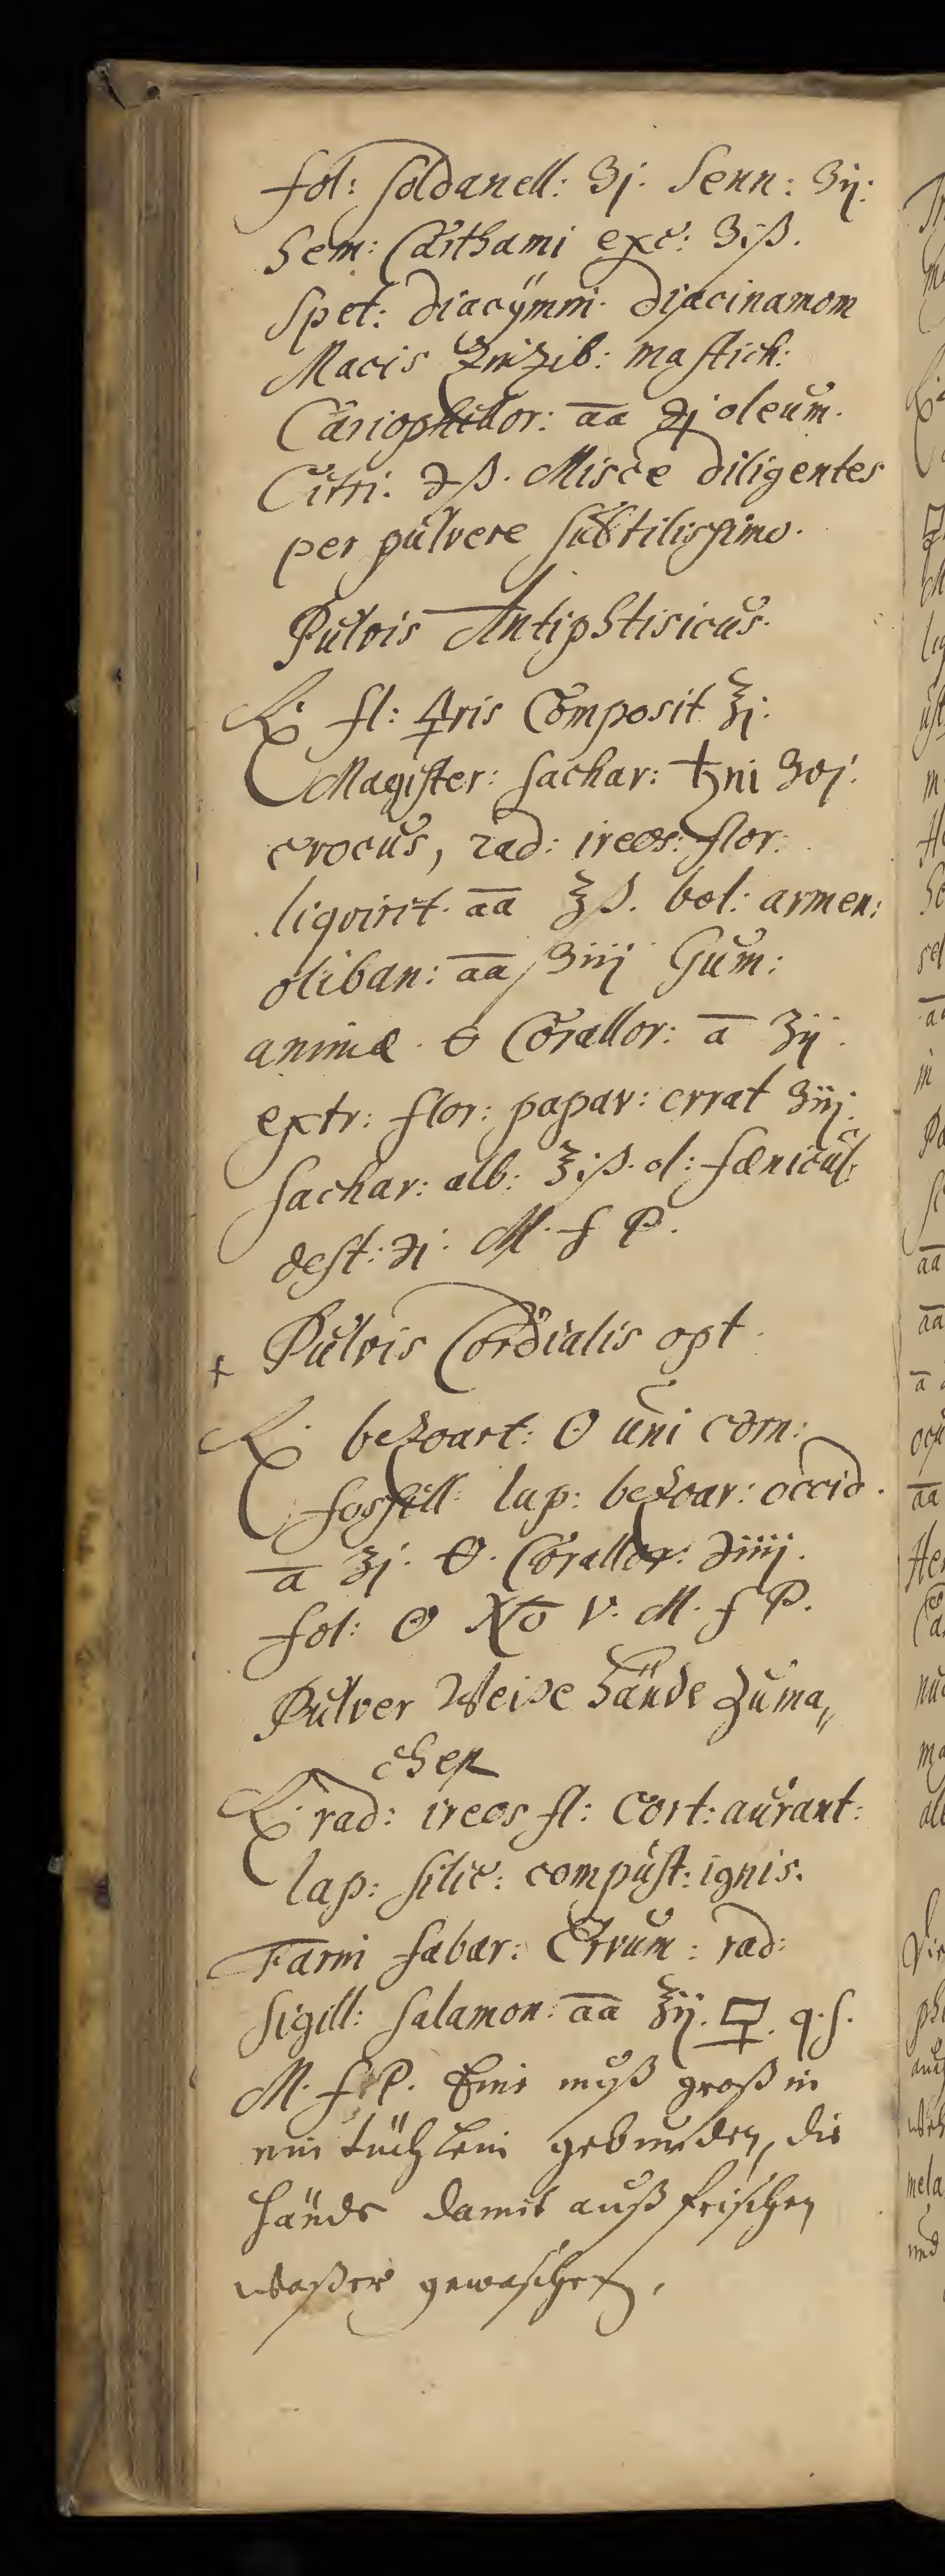 fol: soldanell: ʒj. Senn: ʒij:
Sem: Carthami exc: ʒiß.
Spet: diacÿmni. diacinamom
Macis Zinzib: mastich:
Cariophillor: āā ℈j oleum.
Citri. ℈ß. Misce diligentes
per pulvere subtilissimo.
Pulvis Antiphtisicus.
℞. fl: 🜍ris Composit ℥j.
Magister: sachar: ♄ni ʒvj.
crocus, rad: ireos: flor:
liqvirit. āā ℥ß. bol: armen:
oliban: āā ʒiiij Gum:
animæ. 🜔 Corallor: ā ʒij.
extr: flor: papav: errat ʒiij.
sachar: alb: ℥iß. ol: fœnicul.
dest: ℈j. M. f P.
+ Pulvis Cordialis opt.
℞. bezoart: ☉ uni corn:
fossill: lap: bezoar: occid.
ā ʒj. 🜔. Corallor: ℈iiij.
fol: ☉ No V. M. f P.
Pulver Weise Hände zuma„
chen
℞. rad: ireos fl: cort: aurant:
lap: silic: compust: ignis.
Farni fabar: Ervum: rad:
Sigill: salamon: āā ℥ij. 🜿. q. s.
M. f. P. Einr nuß groß in
ein tüchlein gebunden, die
hände damit auß frischen
waßer gewaschen.